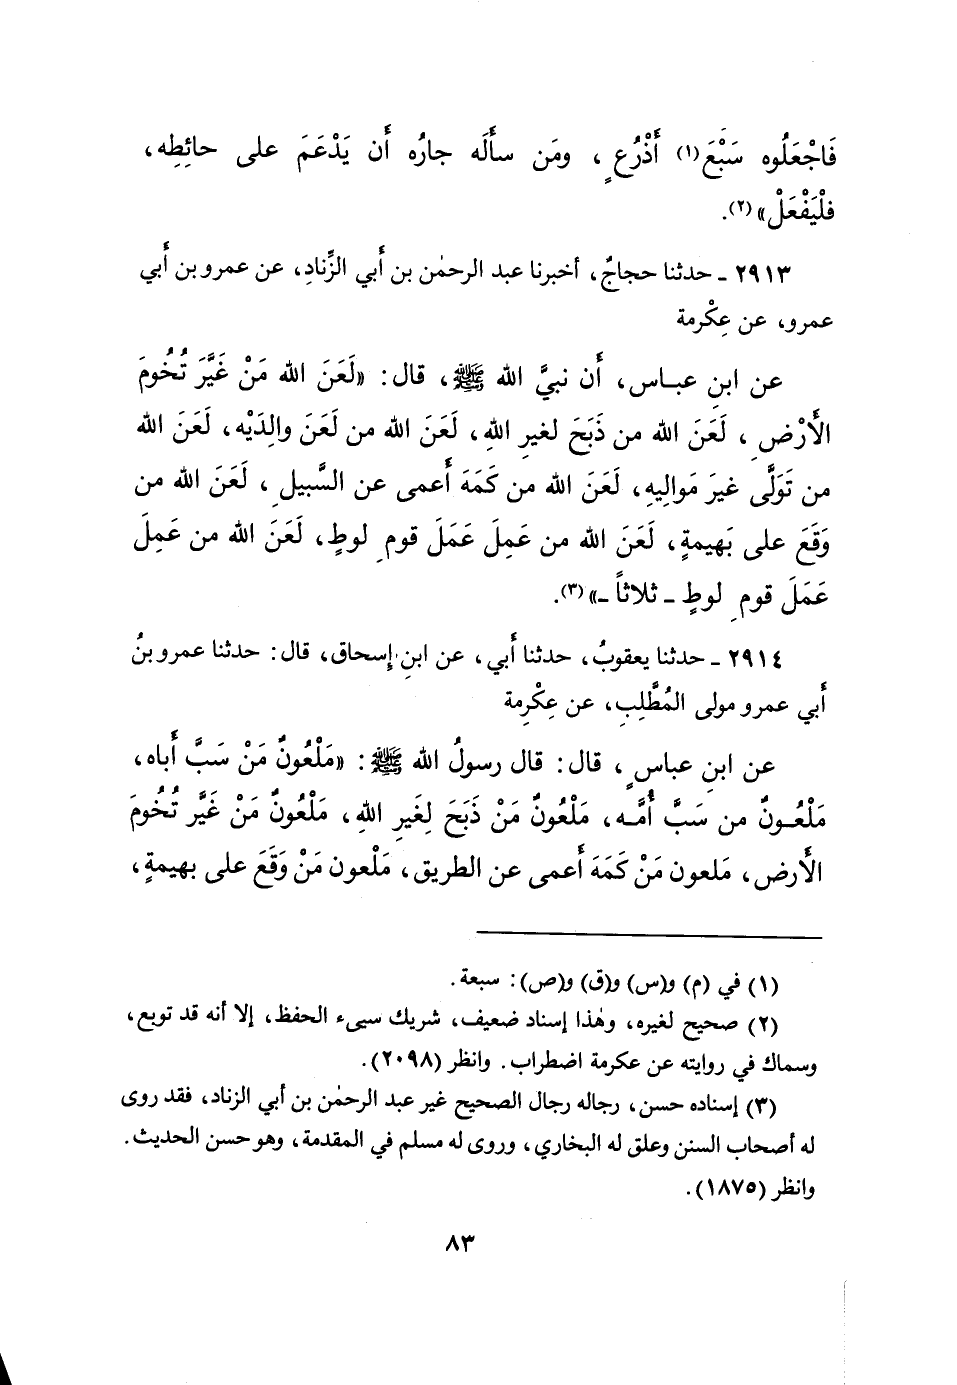 فَاجْعَلُوه سَبْعَ(١) أَذْرُعٍ، ومَن سأَلَه جارُه أَن يَدْعَمَ على حائِطِه،
فلْيَفْعَلْ»(٢).
٢٩١٣ ـ حدثنا حجاجٌ، أخبرنا عبد الرحمٰن بن أَبي الزِّنادِ، عن عمرو بن أَبي
عمرو، عن عِكْرمة
عن ابنِ عباس، أَن نبيَّ الله ﷺ، قال: «لَعَنَ الله مَنْ غَيَّرَ تُخُومَ
الأَرْضِ، لَعَنَ الله من ذَبَحَ لغيرِ اللهِ، لَعَنَ الله من لَعَنَ والِدَيْه، لَعَنَ الله
من تَوَلَّى غيرَ مَوالِيهِ، لَعَنَ الله من كَمَهَ أَعمى عن السَّبيلِ، لَعَنَ الله من
وَقَعَ على بَهيمةٍ، لَعَنَ الله من عَمِلَ عَمَلَ قومِ لوطٍ، لَعَنَ الله من عَمِلَ
عَمَلَ قومِ لوطٍ ـ ثلاثاً ـ»(٣).
٢٩١٤ ـ حدثنا يعقوبُ، حدثنا أَبي، عن ابنِ إِسحاق، قال: حدثنا عمرو بنُ
أَبي عمرو مولى المُطَّلِبِ، عن عِكْرِمة
عن ابنِ عباسٍ، قال: قال رسولُ الله ﷺ: «مَلْعُونٌ مَنْ سَبَّ أَباه،
مَلْعُونٌ من سَبَّ أُمَّه، مَلْعُونٌ مَنْ ذَبَحَ لِغَيرِ اللهِ، مَلْعُونٌ مَنْ غَيَّر تُخُومَ
الأَرض، مَلعون مَنْ كَمَهَ أَعمى عن الطريق، مَلْعون مَنْ وَقَعَ على بهيمةٍ،
(١) في (م) و(س) و(ق) و(ص): سبعة.
(٢) صحيح لغيره، وهٰذا إسناد ضعيف، شريك سيىء الحفظ، إلا أنه قد توبع،
وسماك في روايته عن عكرمة اضطراب. وانظر (٢٠٩٨).
(٣) إسناده حسن، رجاله رجال الصحيح غير عبد الرحمٰن بن أبي الزناد، فقد روى
له أصحاب السنن وعلق له البخاري، وروى له مسلم في المقدمة، وهو حسن الحديث.
وانظر (١٨٧٥).
٨٣